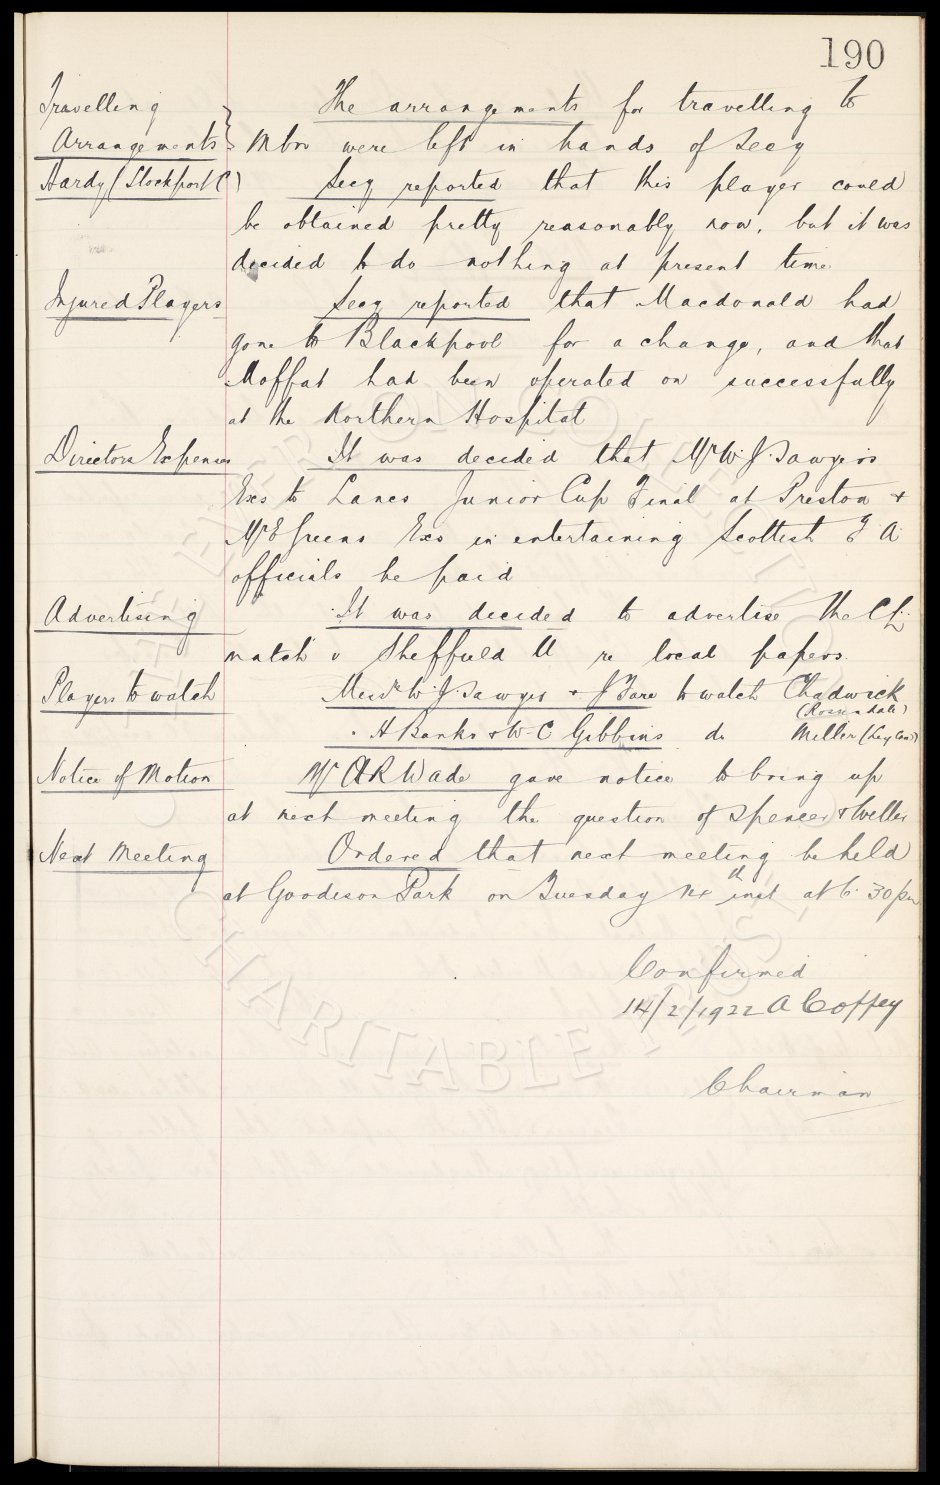 190
Travelling The arrangements for travelling to
Arrangements Mbro were left in hands of Secy
Hardy (Stockport C) Secy reported that this player could
be obtained pretty reasonably now, but it was
decided to do nothing at present time
Injured Players Secy reported that Macdonald had
gone to Blackpool for a change, and that
Moffat had been operated on successfully
at the Northern Hospital
Directors Expenses It was decided that Mr W. J. Sawyers
Exs to Lancs Junior Cup Final at Preston +
Mr E Greens Exs in entertaining Scottish F A
officials be paid
Advertising It was decided to advertise the C L
match v Sheffield U re local papers.
Players to watch Messrs W. J. Sawyer + J Fare to watch Chadwick
(Rossendale)
" H Banks + W. C Gibbins do Miller (Leyland)
Notice of Motion Mr A R Wade gave notice to bring up
at next meeting the question of Spencer + Weller
Next Meeting Ordered that next meeting be held
at Goodison Park on Tuesday 14th inst at 6. 30 pm
Confirmed
14/2/1922 A Coffey
Chairman
EVERTON COLLECTION
CHARITABLE TRUST